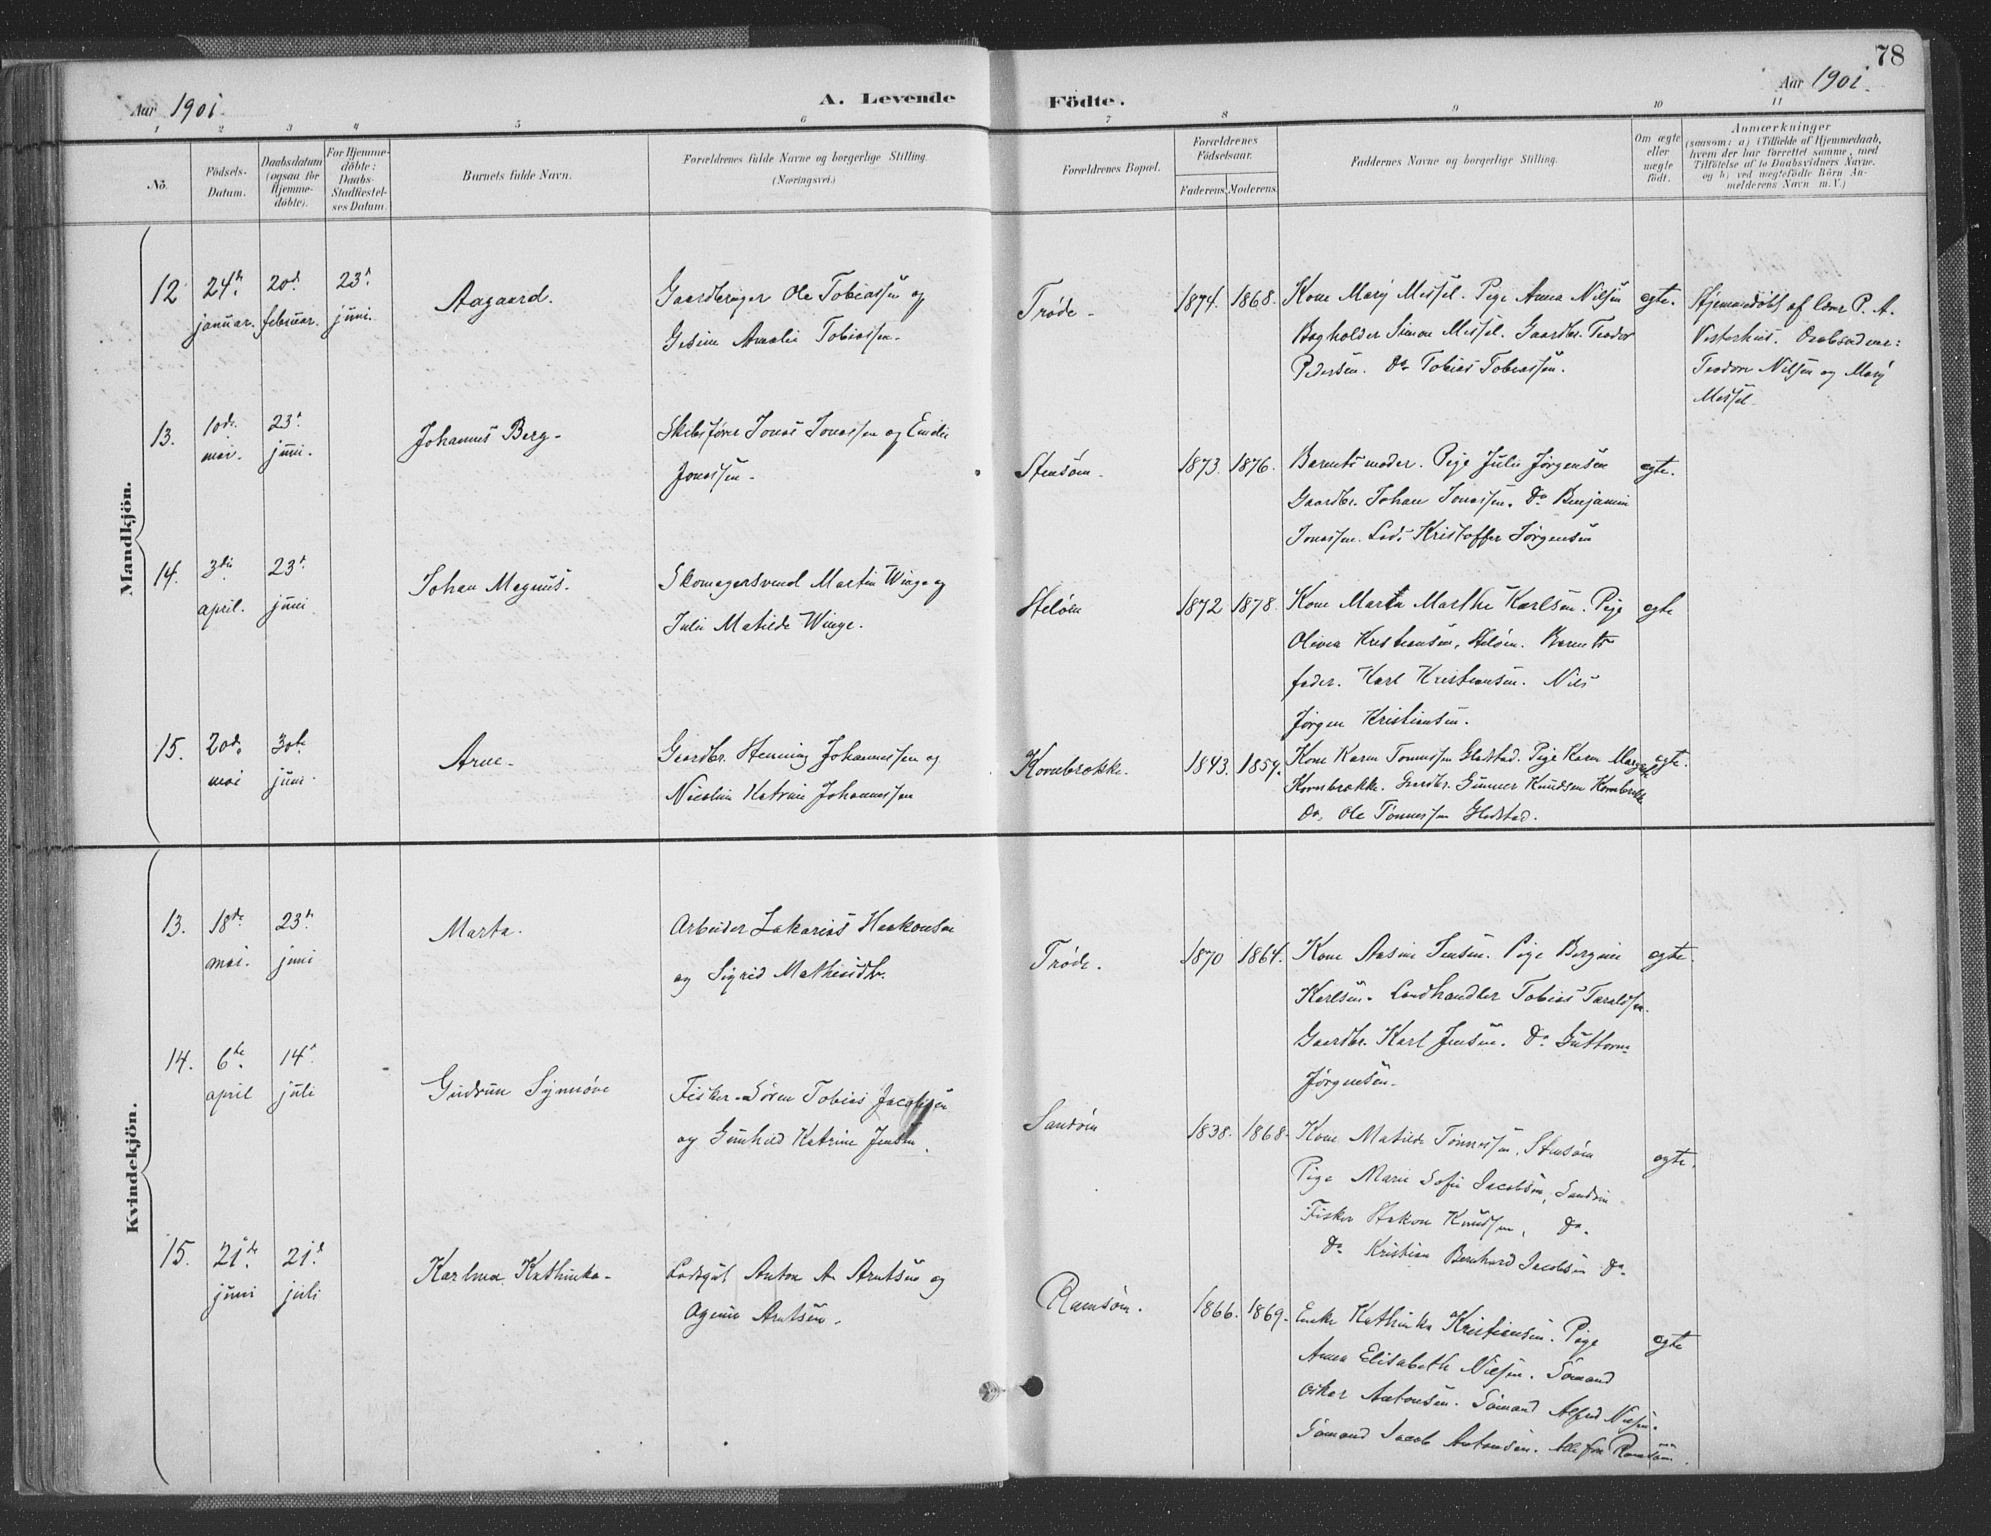 78
Aar 1901. A. Levende Födte. Aar 1901.
1 2 3 4 5 6 7 8 9 10 11
No.
Födsels-Datum.
Daabsdatum (ogsaa for Hjemme-döbte).
For Hjemme-döbte: Daabs-Stadfæstel-ses Datum.
Barnets fulde Navn.
Forældrenes fulde Navne og borgerlige Stilling. (Næringsvei.)
Forældrenes Bopæl.
Forældrenes Födselsaar.
Faderens. Moderens.
Faddernes Navne og borgerlige Stilling.
Om ægte eller uægte födt.
Anmærkninger
(saasom: a) i Tilfælde af Hjemmedaab, hvem der har forrettet samme, med Tilföielse af to Daabsvidners Navne. og b) ved uægtefödte Börn Anmelderens Navn m. V.)
Mandkjön.
12 24de januar. 20de februar. 23de juni.
Aagaard.
Gaardbruger Ole Tobiassen og
Gesine Amalie Tobiassen.
Trøde.
1874. 1868.
Kone Mary Messel. Pige Anna Nilsen
Bogholder Simon Messel. Gaardbr. Teodor
Pedersen. Do Tobias Tobiassen.
egte.
Hjemmedøbt af P. A.
Teodor Nilsen og Mary
Messel
13. 10de mai. 23de juni.
Johannes Berg.
Skibsfører Jonas Jonassen og Emilie
Jonassen.
Stensøen.
1873. 1876.
Barnets moder. Pige Julie Jørgensen
Gaardbr. Johan Jonassen. Do Benjamin
Jonassen. Lods Kristoffer Jørgensen
egte.
14. 3die april. 23de juni.
Johan Magnus.
Skomagersvend Martin Winge og
Julie Matilde Winge.
Heløen
1872 1878.
Kone Marta Marthe Karlsen. Pige
Olivia Kristiansen, Heløen. Barnets
fader. Karl Kristiansen. Nils
Jørgen Kristiansen.
egte
15. 20de mai 30te juni.
Arne.
Gaardbr. Henning Johannessen og
Nicoline Katrine Johannessen
Kornbrække.
1843. 1859.
Kone Karen Tønnessen Gladstad. Pige Karen
Kornbrække. Gaardbr. Gunner Knudsen Kornbrække
Do. Ole Tønnessen Gladstad.
egte.
Kvindekjön.
13. 18de mai. 23de juni
Marta.
Arbeider Zakarias Haakonsen
og Sigrid Mathisdtr.
Trøde.
1870 1864.
Kone Aasine Jensen. Pige Bergine
Karlsen. Landhandler Tobias Taraldsen.
Gaardbr. Karl Jensen. Do Guttorm
Jørgensen.
egte.
14. 6te april 14de juli
Gudrun Synnøve
Fisker Søren Tobias Jacobsen
og Gunhild Katrine Jensen.
Sandøen
1838. 1868.
Kone Matilde Tønnessen, Stensøen
Pige Marie Sofie Jacobsen, Sandøen
Fisker Hakon Knudsen, Do.
Do. Kristian Bernhard Jacobsen Do.
egte.
15. 21de juni 21de juli
Karlma Kathinka.
Lodsgut Anton A. Arntsen og
Agnine Arntsen.
Ramsøen.
1866. 1869.
Enke Kathinka Kristiansen. Pige
Anna Elisabeth Nilsen. Sømand
Oskar Antonsen. Sømand Alfred Nilsen.
Sømand Jacob Antonsen. Alle fra Ramsøen.
egte